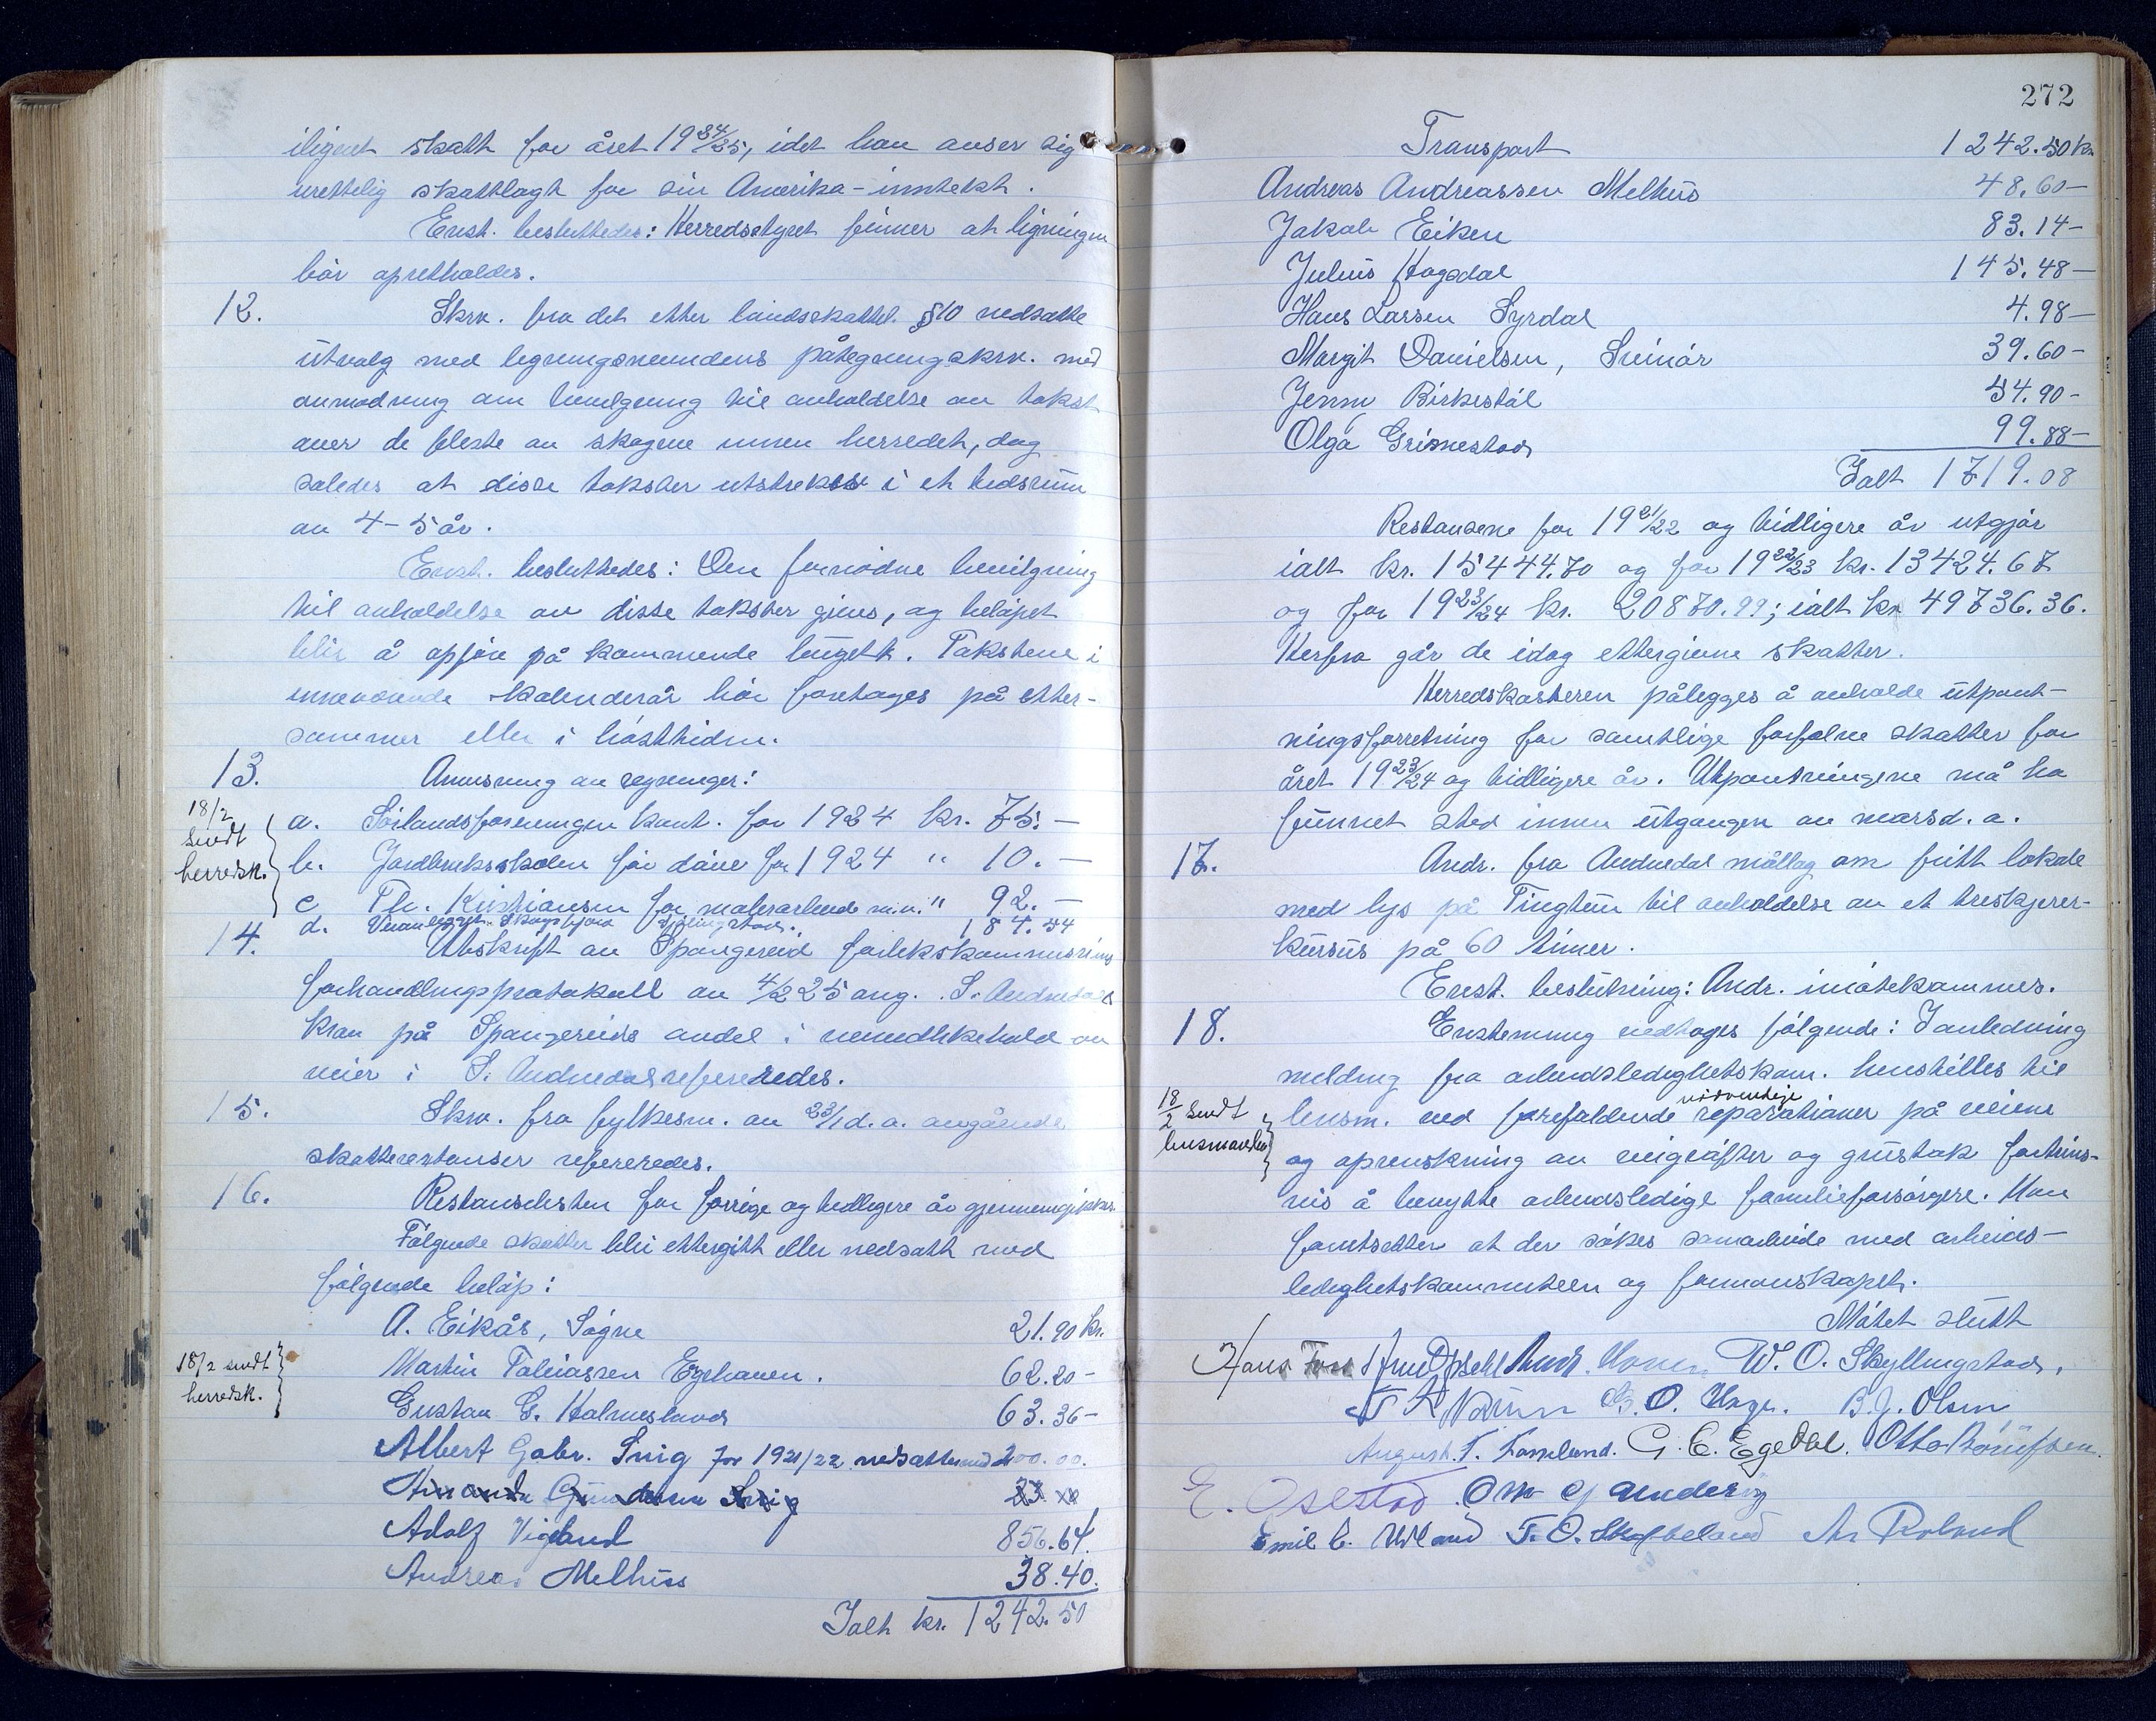 ilignet skatt for året 19 24/25, idet han anser sig
urettelig skattlagt for sin Amerika-inntekt.
Enst. besluttedes: Herredsstyret finner at ligningen
bør opretholdes.
12. Skrv. fra det etter landsskattel. §10 nedsatte
utvalg med ligningsnemndens påtegningsskrv. med
anmodning om bevilgning til avholdelse av takst
over de fleste av skogene innen herredet, dog
saledes at disse takster utstrekkes i et tidsrum
av 4-5 år.
Enst. besluttedes: Den fornødne bevilgning
til avholdelse av disse takster gives, og beløpet
blir å opføre på kommende budgett. Takstene i
inneværende kalenderår bør foretages på etter-
sommer eller i høsttiden.
13. Anvisning av regninger:
18/2
sendt
herredsk.
a. Sørlandsforeningen kont. for 1924 kr. 75.-
b. Jordbruksskolen før døve for 1924 " 10.-
c Th. Kristiansen for malerarbeide m.v. " 92.-
d. 184.54
14. Utskrift av Spangereid forlikskommisjons
forhandlingsprotokoll av 4/2 25 ang. S. Audnedals
krav på Spangereids andel i vemdlikehold av
veier i S. Audnedal refereredes.
15. Skrv. fra fylkesm. av 23/1 d.a. angående
skatterestanser refereredes.
16. Restanselisten for forrige og tidligere år gjennemgikkes.
Følgende skatter blir ettergitt eller nedsatt med
følgende beløp:
A. Eikås, Søgne 21.90 kr.
18/2 sendt
herredsk.
Martin Tobiassen Egehaven. 62.20-
Gustav G. Holmesland 63.36-
Albert Gabr. Snig for 1921/22 nedsattes med 200.00.
Adolf Vigeland 856.64.
Andreas Melhus 38.40.
Ialt kr. 1242.50
272
Transport 1242.50 kr
Andreas Andreassen Melhus 48.60-
Jakob Eiken 83.14-
Julius Høgsdal 145.48-
Hans Larsen Syrdal 4.98-
Margit Danielsen, Svinør 39.60-
Jenny Birkestøl 54.90-
Olga Grimestad 99.88-
Ialt 1719.08
Restansene for 19 21/22 og tidligere år utgjør
ialt kr. 15444.70 og for 19 22/23 kr. 13424.67
og for 19 23/24 kr. 20870.99; ialt kr 49736.36.
Herfra går de idag ettergivne skatter.
Herredskasseren pålegges å avholde utpant-
ningsforretning for samtlige forfalne skatter for
året 19 23/24 og tidligere år. Utpantningene må ha
funnet sted innen utgangen av mars d.a.
17. Andr. fra Audnedal mållag om fritt lokale
med lys på Tingtun til avholdelse av et treskjerer-
kursus på 60 timer.
Enst. beslutning: Andr. imøtekommes.
18. Enstemmig vedtoges følgende: I anledning
melding fra arbeidsledighetskom. henstilles til
18/2 sendt
lensmannen
lensm. ved forefaldende nødvendige reparationer på veiene
og oprenskning av veigrøfter og grustak fortrins-
vis å benytte arbeidsledige familieforsørgere. Man
forutsetter at der søkes samarbeide med arbeids-
ledighetskommiteen og formanskapet.
Møtet slutt
Hans W. O. Skyllingstad,
B. J. Olsen
August. T. G. E. Egedal. Otto
E. Osestad
Emil T. O. Roland